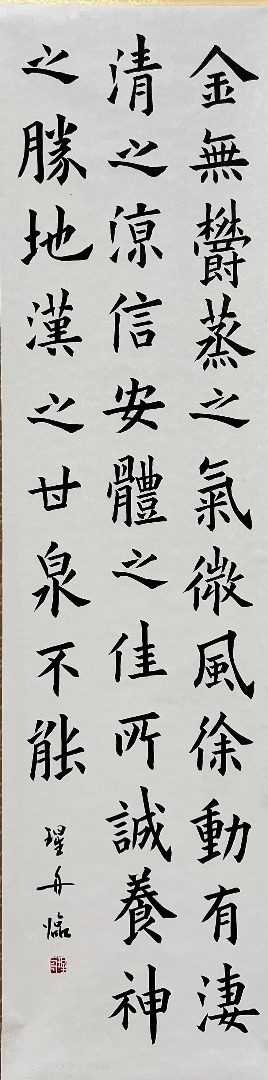 金無欝蒸之氣微風徐動有淒
清之涼信安體之佳所誠養神
之勝地漢之甘泉不能
瑆舟臨